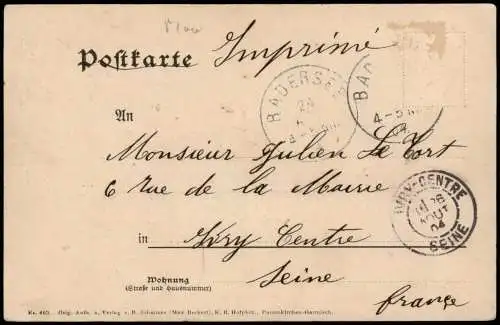 Postkarte Imprimé
BADERSEE
24
BAD
4-5 N
04
An
Monsieur Julien Le Cort
6 rue de la Mairie
IVRY-CENTRE
26
AOUT
04
SEINE
in Ivry Centre
Wohnung
(Straße und Hausnummer)
Seine
France
Nr. 463. Orig.-Aufn. u. Verlag v. B. Johannes (Max Beckert), K. B. Hofphot., Partenkirchen-Garmisch.